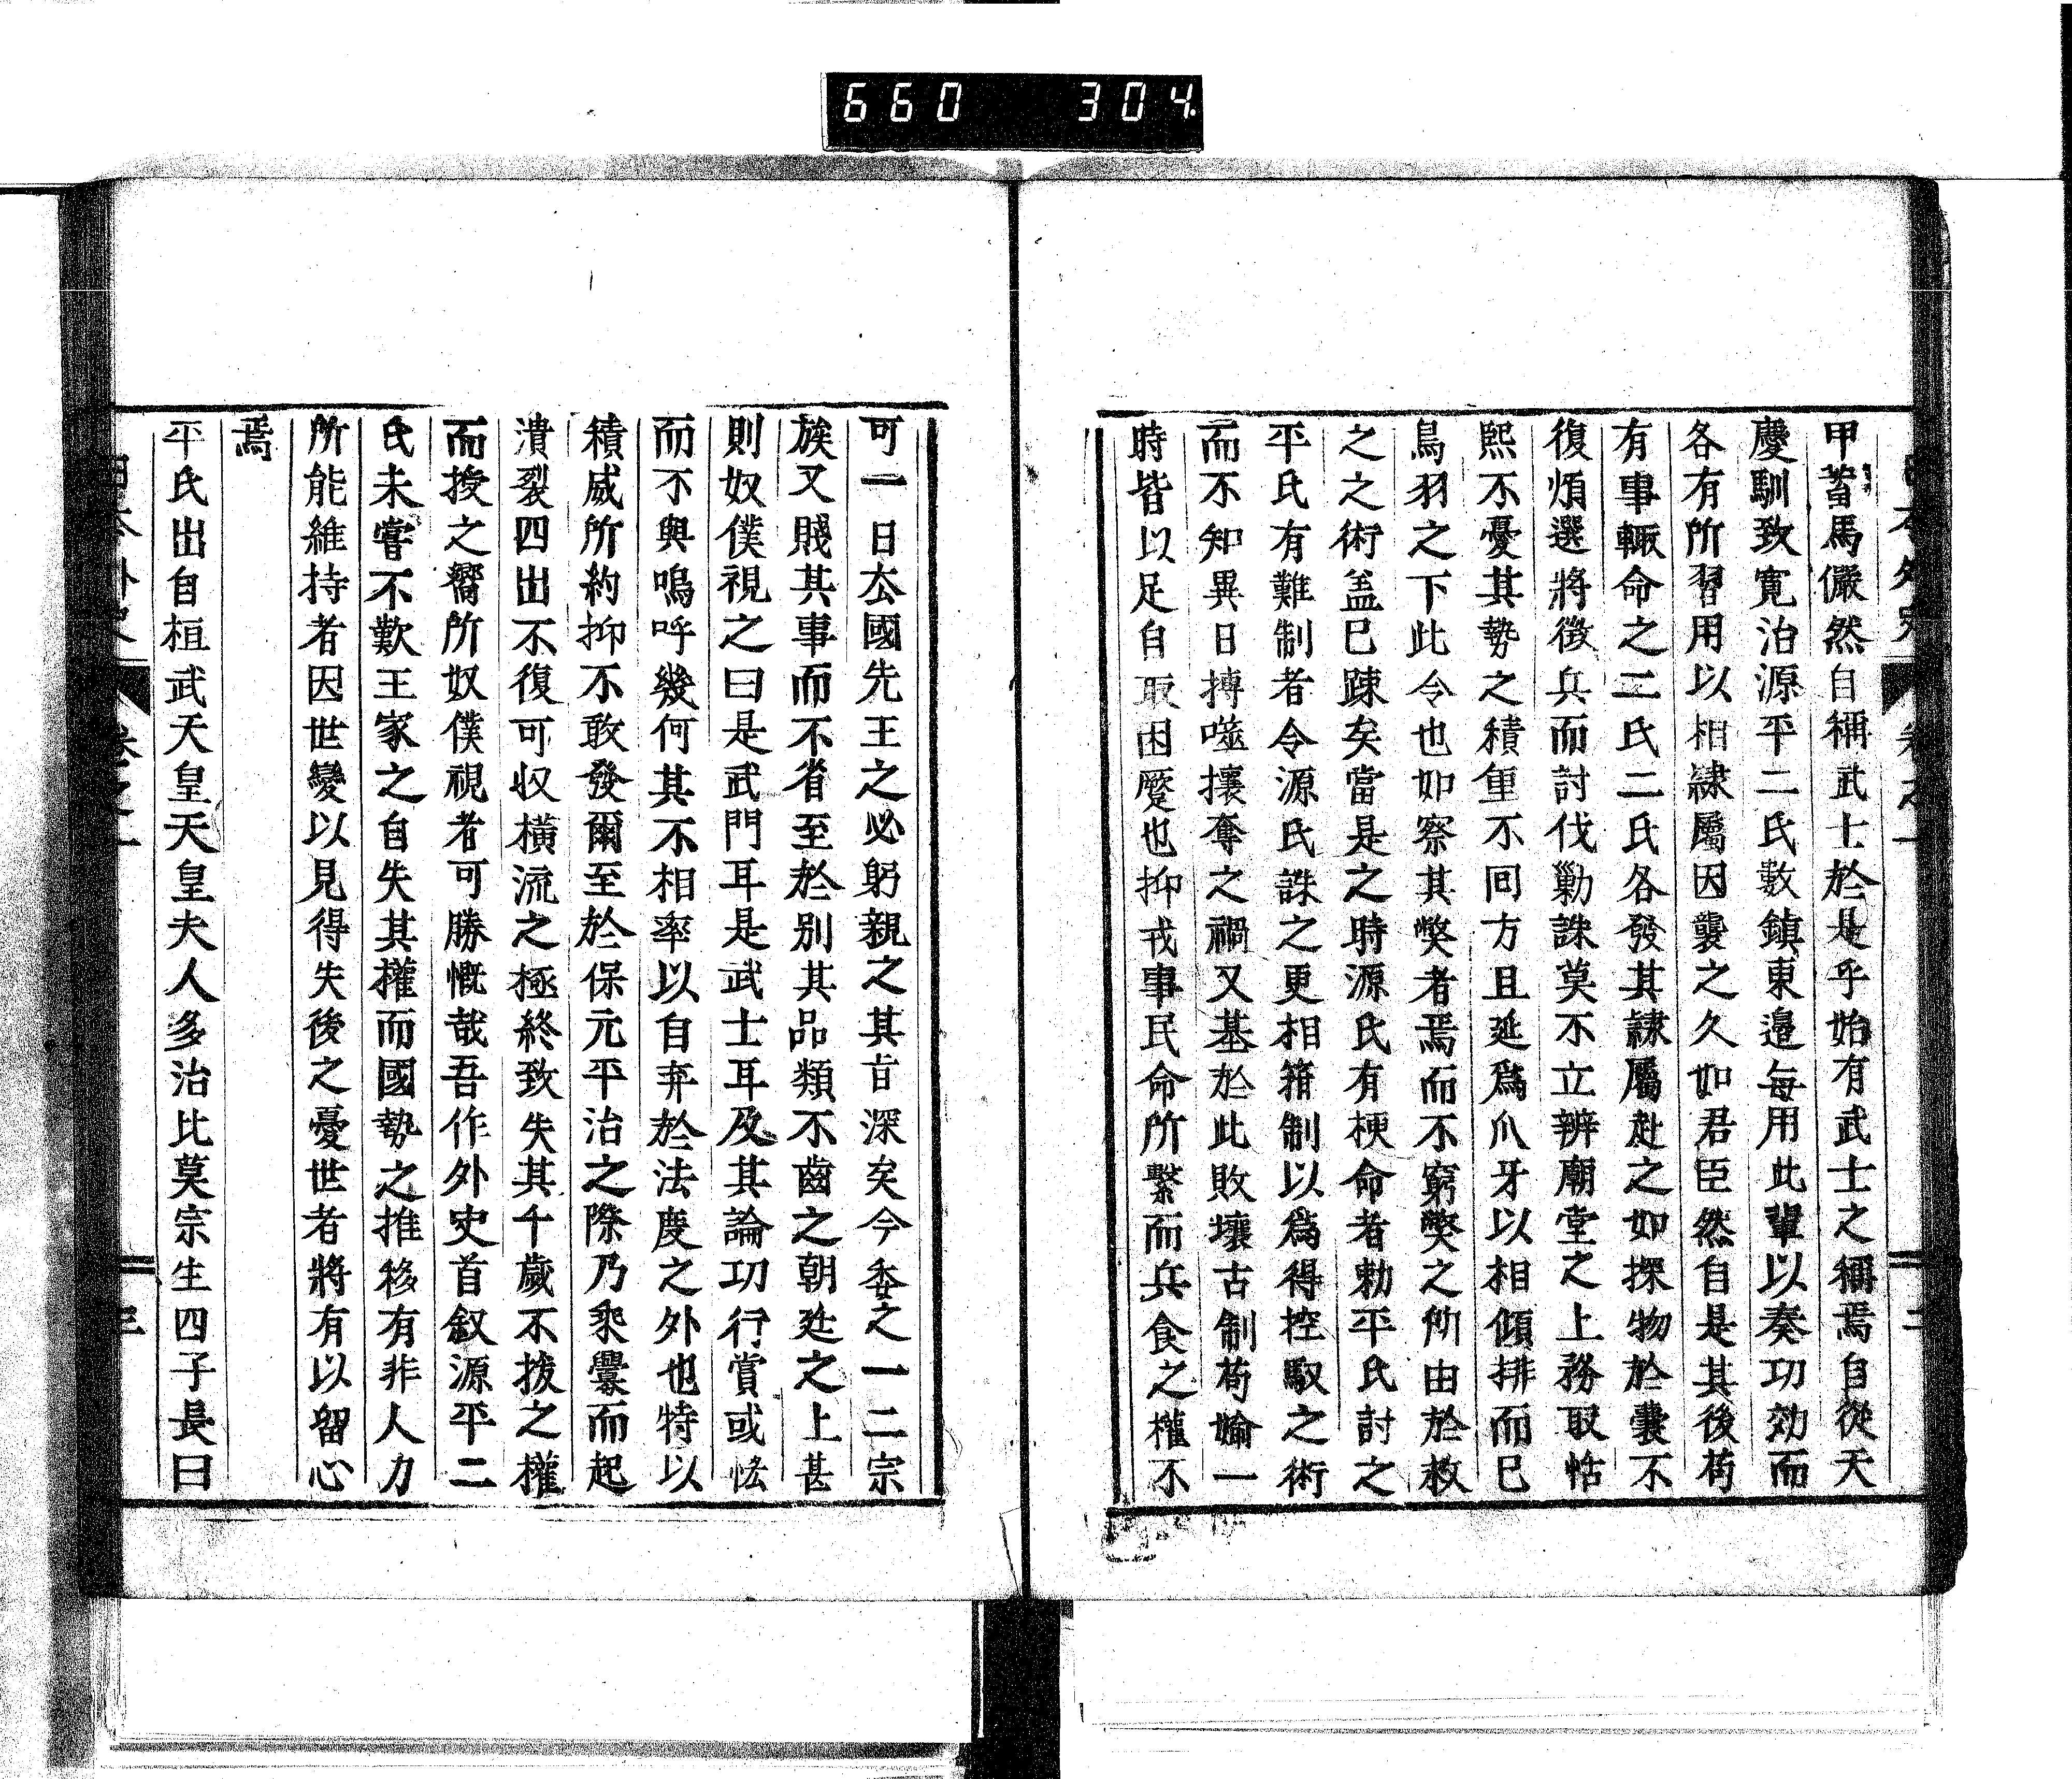 660 304
甲蓄馬儼然自稱武士於是乎始有武士之稱焉自從天
慶馴致寬治源平二氏數鎮東邊每用此輩以奏功効而
各有所習用以相隷屬因襲之久如君臣然自是其後苟
有事輙命之二氏二氏各發其隷屬赴之如探物於囊不
復煩選將徵兵而討伐勦誅莫不立辨廟堂之上務取恬
熙不憂其勢之積重不回方且延爲爪牙以相傾排而已
鳥羽之下此令也如察其弊者焉而不窮弊之所由於救
之之術盖已踈矣當是之時源氏有梗命者勅平氏討之
平氏有難制者令源氏誅之更相箝制以爲得控馭之術
而不知異日搏噬攘奪之禍又基於此敗壞古制苟婾一
時皆以足自取困蹙也抑戎事民命所繫而兵食之權不
可一日厺國先王之必躬親之其旨深矣今委之一二宗
族又賤其事而不省至於別其品類不齒之朝廷之上甚
則奴僕視之曰是武門耳是武士耳及其論功行賞或恡
而不與嗚呼幾何其不相率以自弃於法度之外也特以
積威所約抑不敢發爾至於保元平治之際乃乘釁而起
潰裂四出不復可収橫流之極終致失其千歲不拔之權
而授之嚮所奴僕視者可勝慨哉吾作外史首叙源平二
氏未嘗不歎王家之自失其權而國勢之推移有非人力
所能維持者因世變以見得失後之憂世者將有以留心
焉
平氏出自桓武天皇天皇夫人多治比莫宗生四子長曰